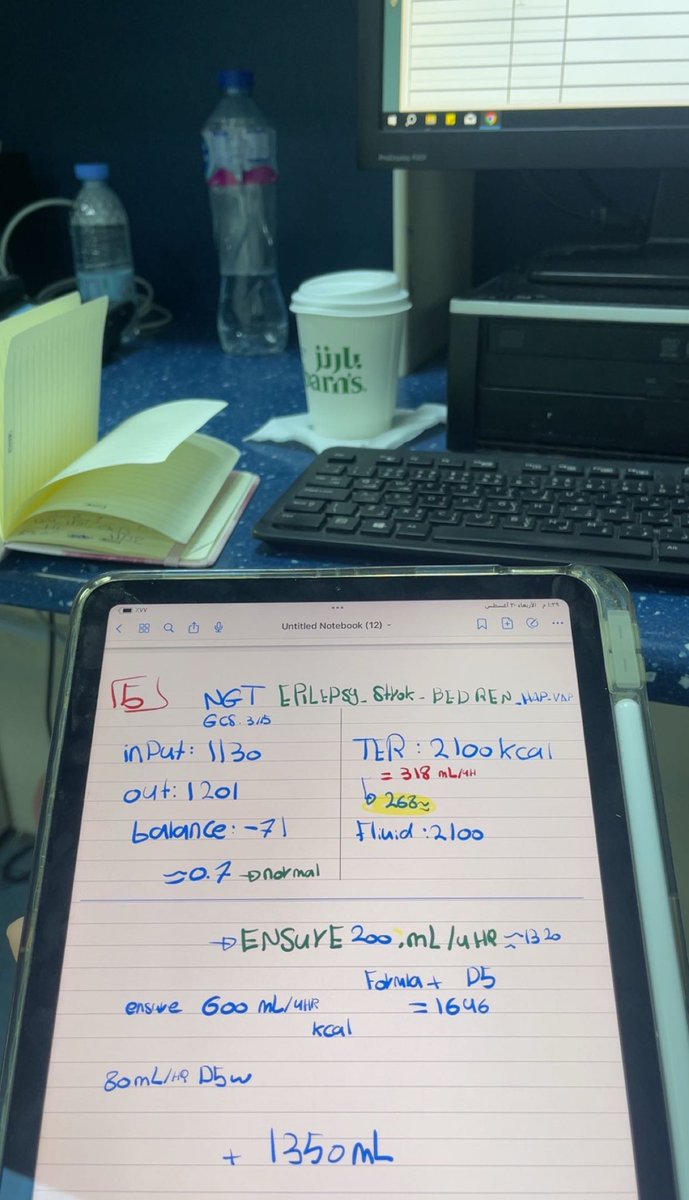 بارنز
barn's.
ProDisplay P201
XVV
١:٢٩ م الأربعاء ٣٠ أغسطس
Untitled Notebook (12)
5 NGT EPILEPSY_Strok_BED REN_HAP_VAP
GCS 3/15
input: 1130
out: 1201
balance: -71
≈0.7 → normal
TER: 2100 kcal
= 318 mL/4H
263≈
Fluid: 2100
→ ENSURE 200 mL/4HR ≈ 1320
Formula + D5
= 1646
ensure 600 mL/4HR
kcal
80mL/HR D5W
+ 1350mL